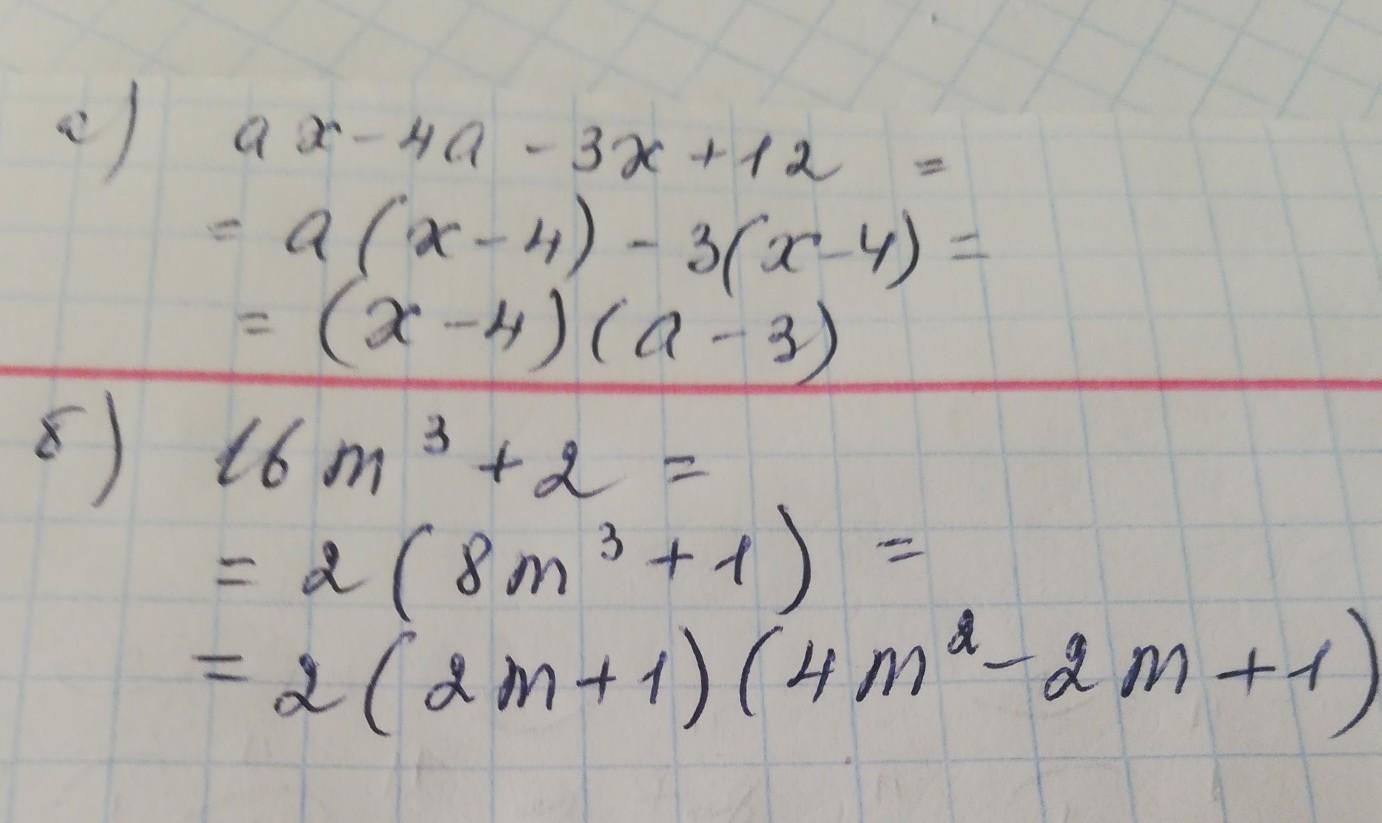 а) ax - 4a - 3x + 12 =
= a(x - 4) - 3(x - 4) =
= (x - 4)(a - 3)
б) 16m³ + 2 =
= 2(8m³ + 1) =
= 2(2m + 1)(4m² - 2m + 1)